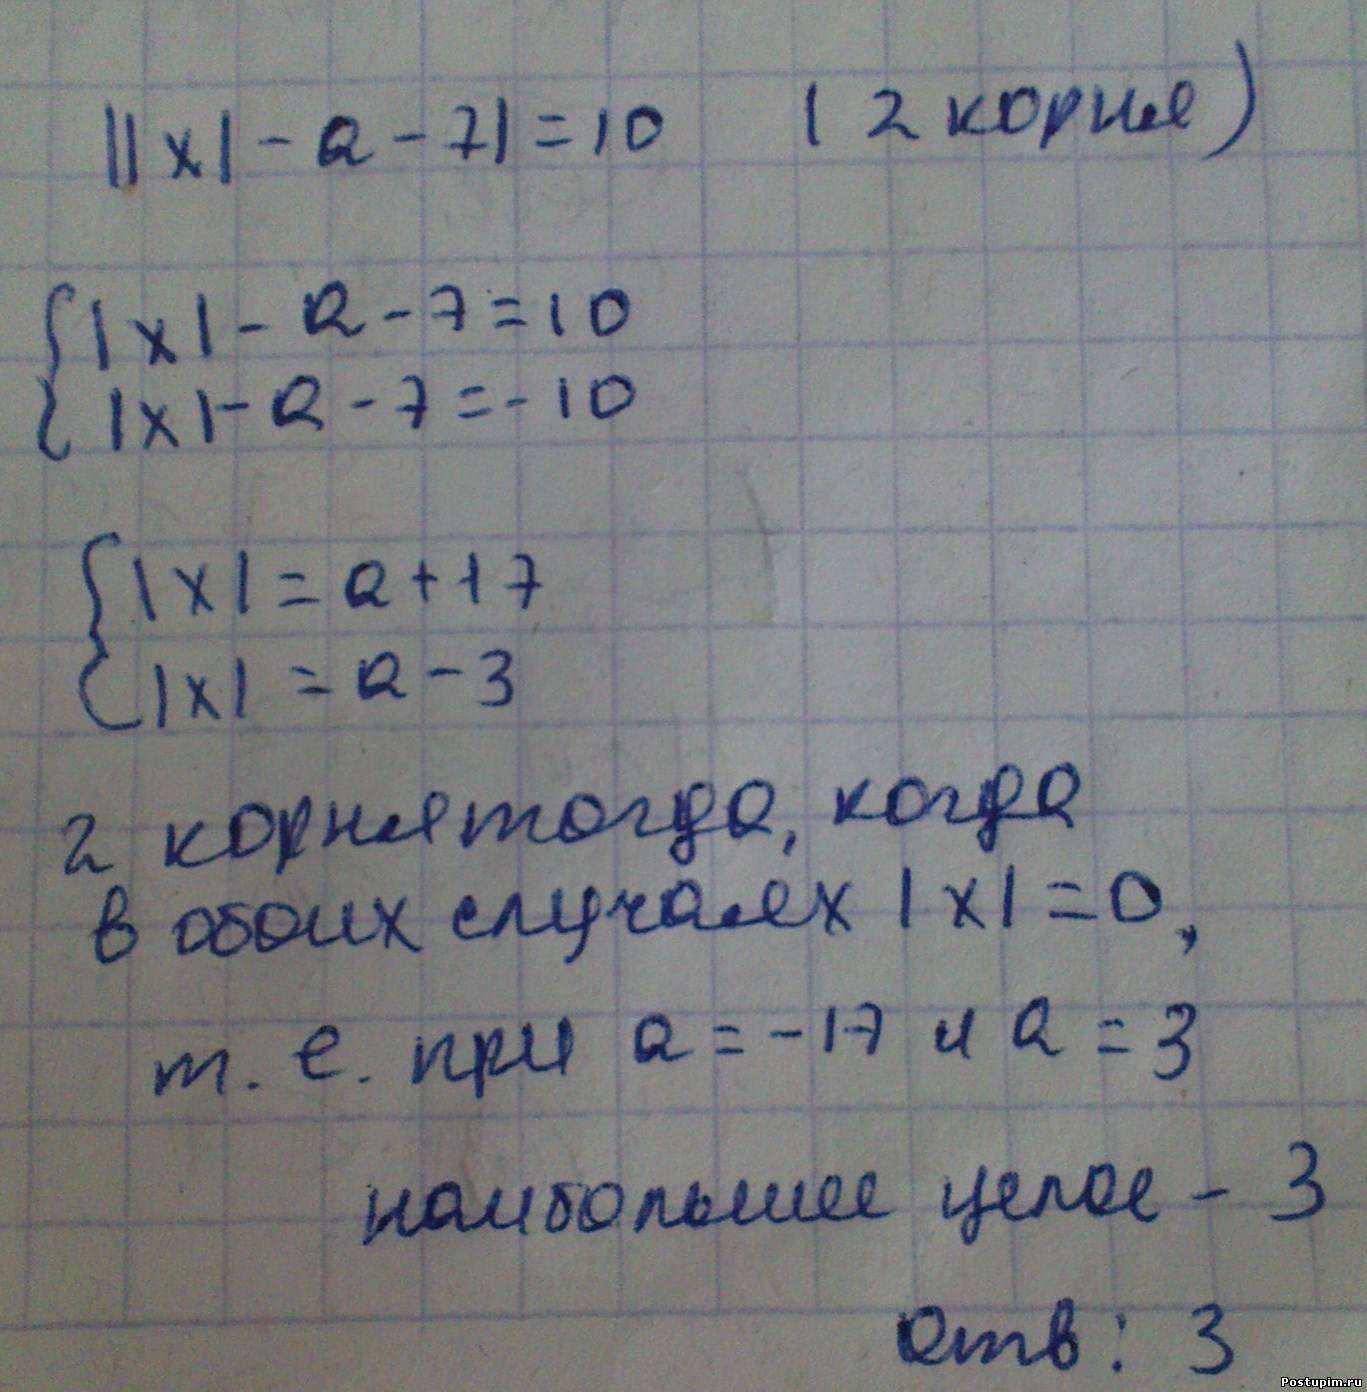 ||x| - a - 7| = 10 ( 2 корня )
|x| - a - 7 = 10
|x| - a - 7 = - 10
|x| = a + 17
|x| = a - 3
2 корня тогда, когда
в обоих случаях |x| = 0,
т. е. при a = -17 и a = 3
наибольшее целое - 3
Отв : 3
Postupim.ru